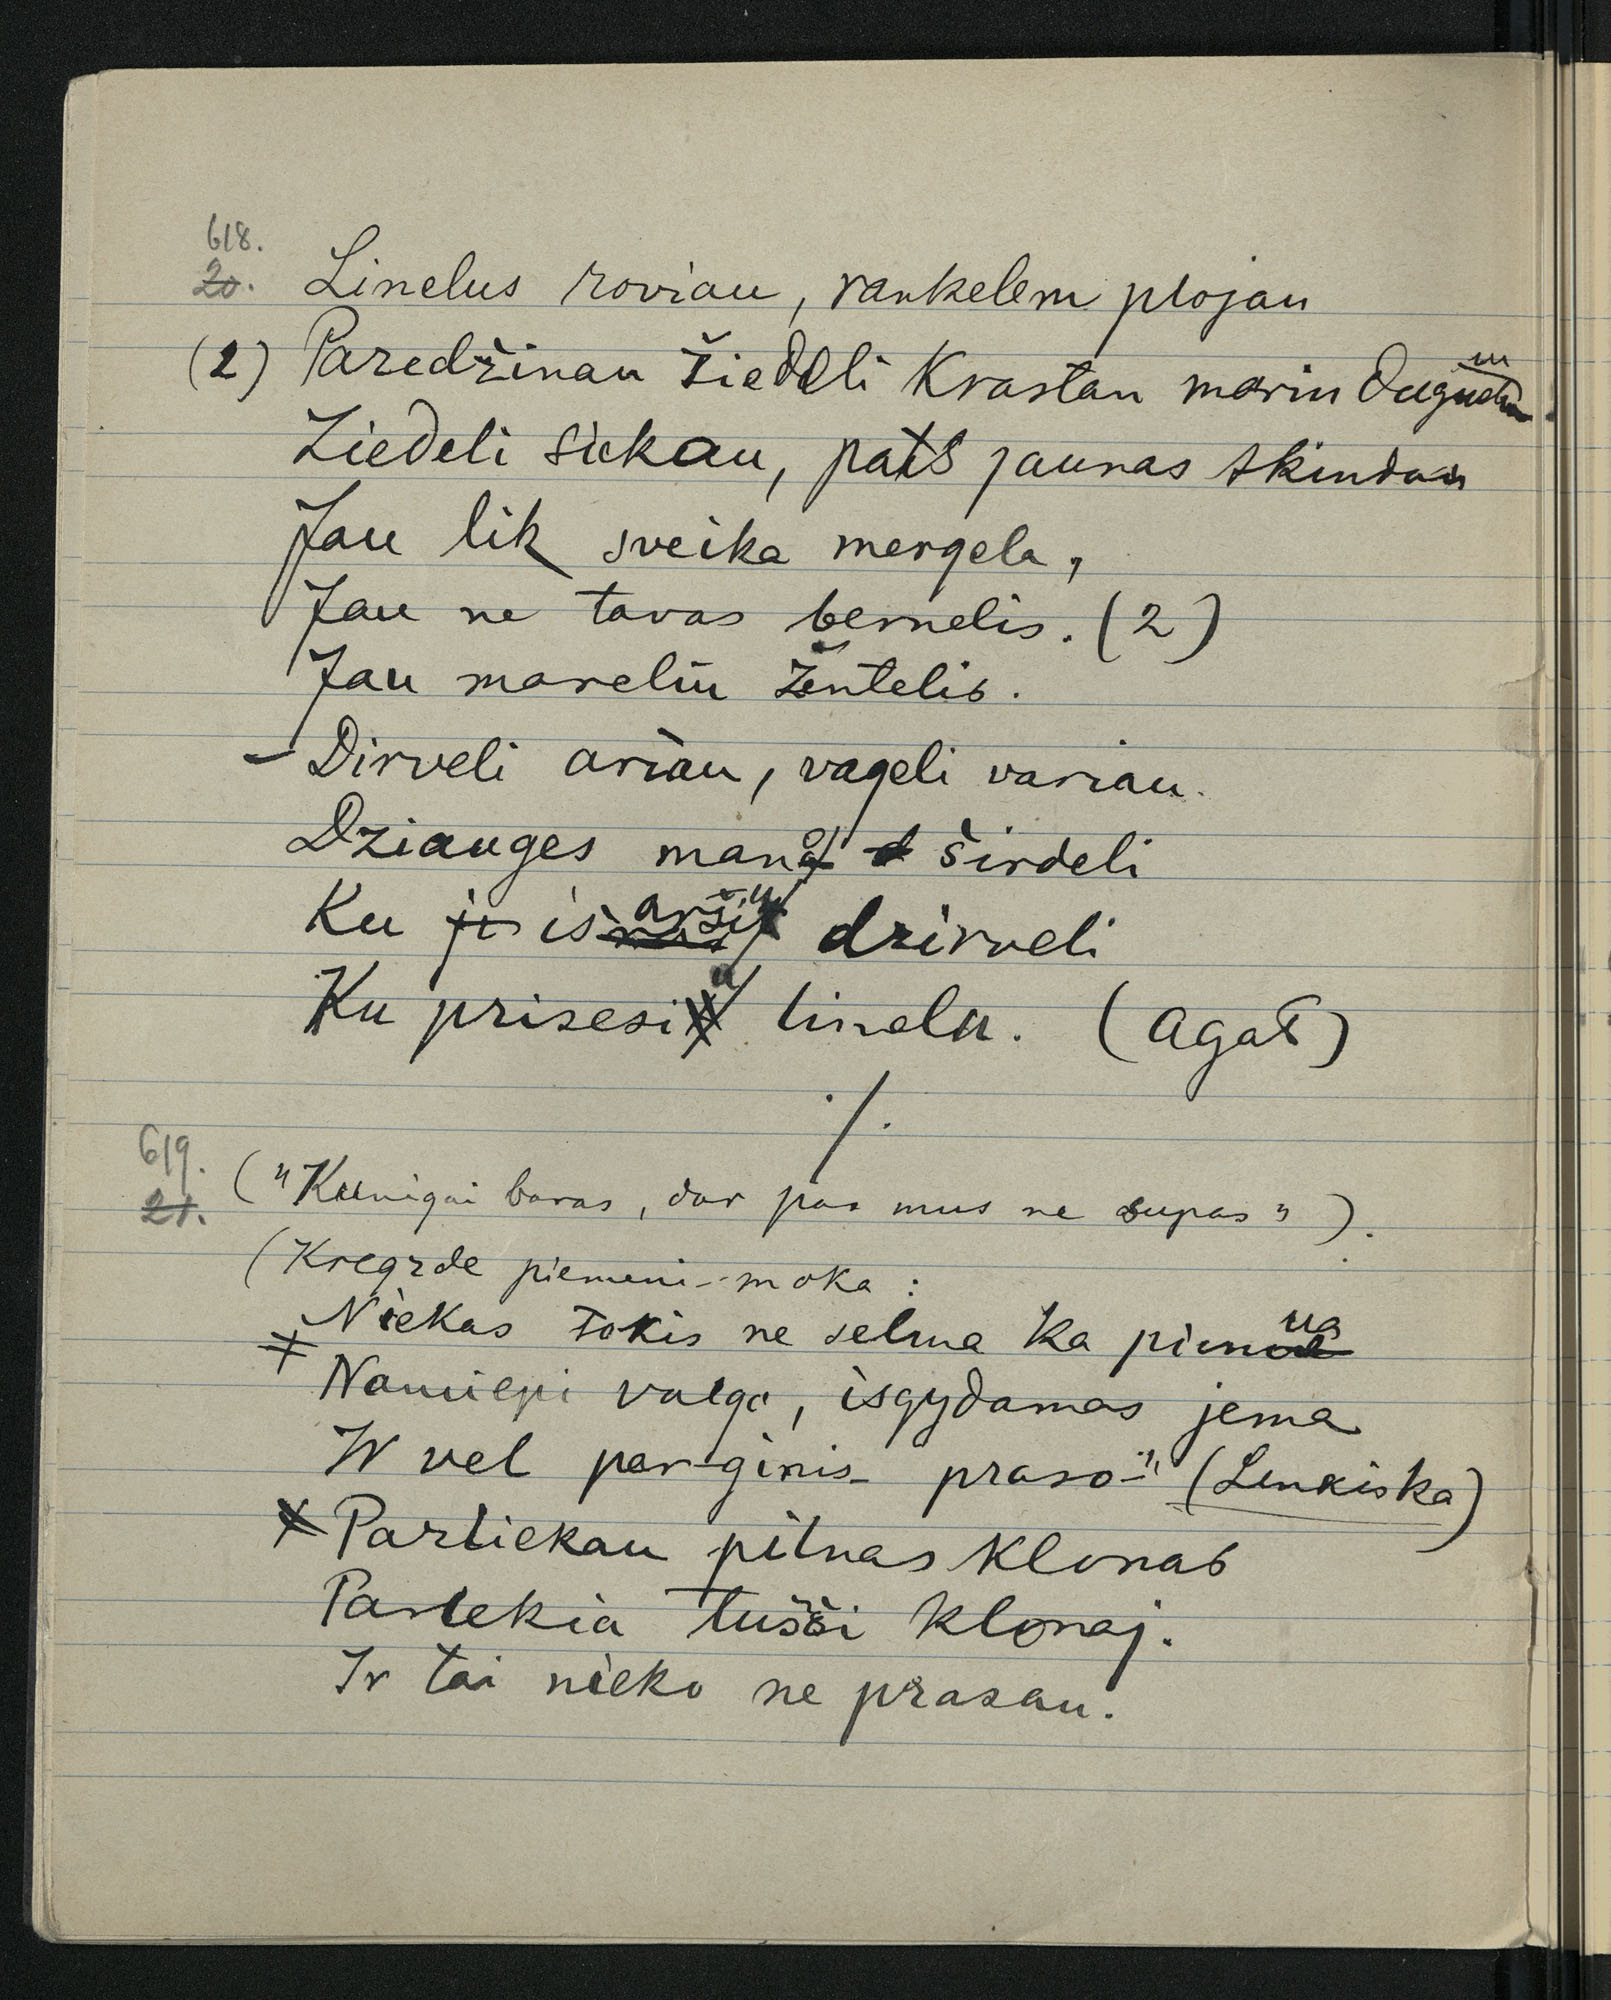 618.
20. Linelus roviau, rankelem plojau
(2) Paredžinau žiedeli Krastan marin
Ziedeli siekau, pats jaunas skindau
Jau lik sveika mergela,
Jau ne tavas bernelis. (2)
Jau mareliu žentelis.
– Dirveli ariau, vageli variau.
Dziauges mano širdeli
Ku ji išaršiu dzirveli
Ku prisesiu linelu. (agat)
./.
619.
21. („Kunigai baras, dar pas mus ne supas").
(Kregzde piemeni-moka:
Niekas tokis ne selma ka
Namiepi valgo, isgydamas jema
Ir vel par-ginis- praso-" (Lenkiska)
Parliekau pilnas klonas
Parlekia tušši klonaj.
Ir tai nieko ne prasau.